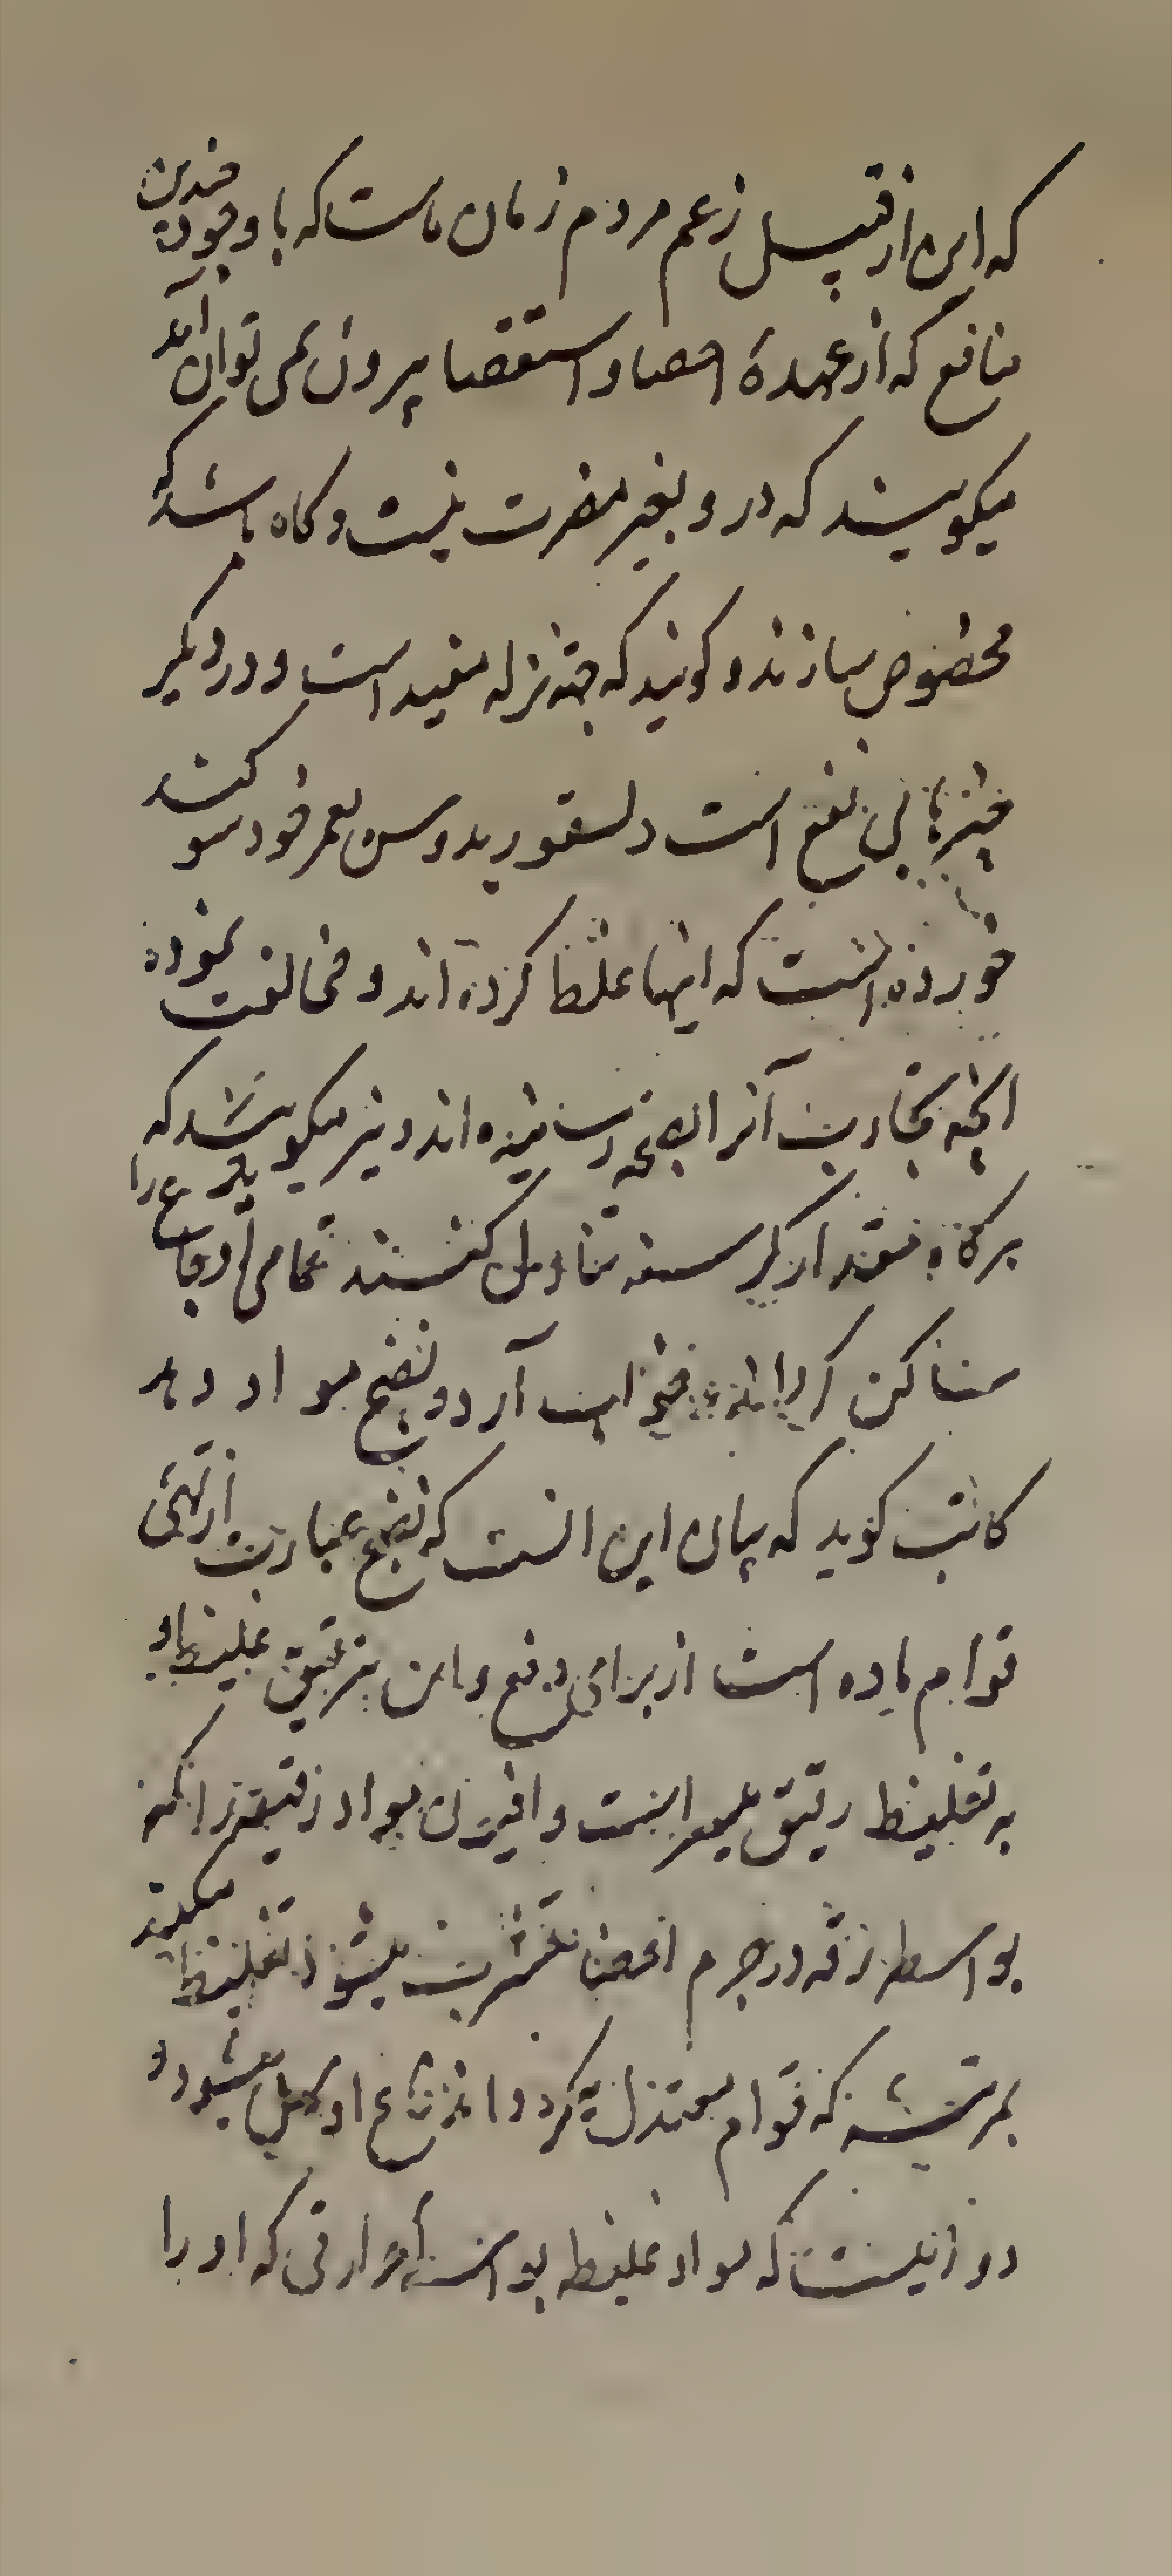 که این از قبیل زعم مردم زمان ماست که با وجود چندین
منافع که از عهدهٔ احصا و استقصا بیرون نمی توان آمد
میکویند که در و بغیر مضرت نیست و کاه باشد که
مخصوص سازند و کویند که جهة نزله مفید است و در دیکر
چیزها بی نفع است دلسقوریدوس بعمر خود سو کند
خورده است که اینها غلط کرده اند و مخالفت نموده
انچه تجارب آنرا بصحه رسانیده اند و نیز میکویند که
هرکاه بقدار کرسنه تناول کنند تمامی اوجاع را
ساکن کرداند خواب آرد و نضج مواد دهد
کاتب کوید که بیان این انست که نضج عبارت از تهیٔ
قوام ماده است از برای دفع و این بترقیق غلیظ و
به تغلیظ رقیق میسر است و افیون مواد رقیقه را که
بواسطه رقه در جرم اعضا متشرب میشود تغلیظ میکند
بمرتبه که قوام معتدل کردد و اندفاع او سهل میشود و
دور نیست که مواد غلیظه بواسطه حرارتی که او را